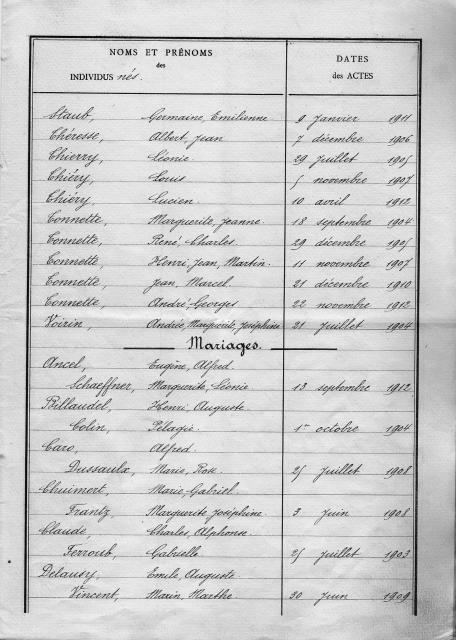 NOMS ET PRÉNOMS
des
INDIVIDUS nés.
DATES
des ACTES
Staub, Germaine, Emilienne 9 Janvier 1911
Théresse, Albert, Jean 7 décembre 1906
Thierry, Léonie 29 Juillet 1905
Thiéry, Louis 5 novembre 1907
Thiéry, Lucien. 10 avril 1912
Tonnette, Marguerite, Jeanne. 18 septembre 1904
Tonnette, René, Charles. 29 décembre 1905
Tonnette, Henri, Jean, Martin. 11 novembre 1907
Tonnette, Jean, Marcel. 21 décembre 1910
Tonnette, André, Georges 22 novembre 1912
Voirin, Andrée, Marguerite, Joséphine 21 Juillet 1904
Mariages.
Ancel, Eugène, Alfred.
Schaeffner, Marguerite, Léonie 13 septembre 1912
Billaudel, Henri, Auguste
Colin, Pélagie. 1er octobre 1904
Caro, Alfred.
Dussaulx, Marie, Rose. 25 Juillet 1908
Chuimert, Marie, Gabriel.
Frantz, Marguerite Joséphine 3 Juin 1908
Claude, Charles, Alphonse.
Ferroub, Gabrielle 25 Juillet 1903
Delausy, Emile, Auguste.
Vincent, Marie, Marthe 30 Juin 1909